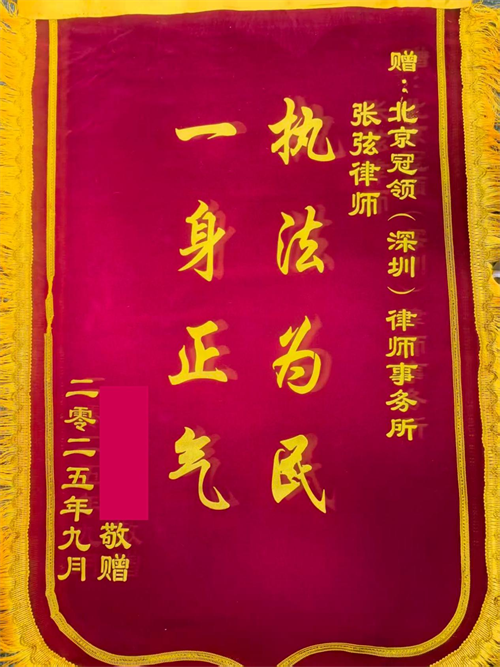 赠：北京冠领（深圳）律师事务所
张弦律师
执法为民
一身正气
敬赠
二零二五年九月